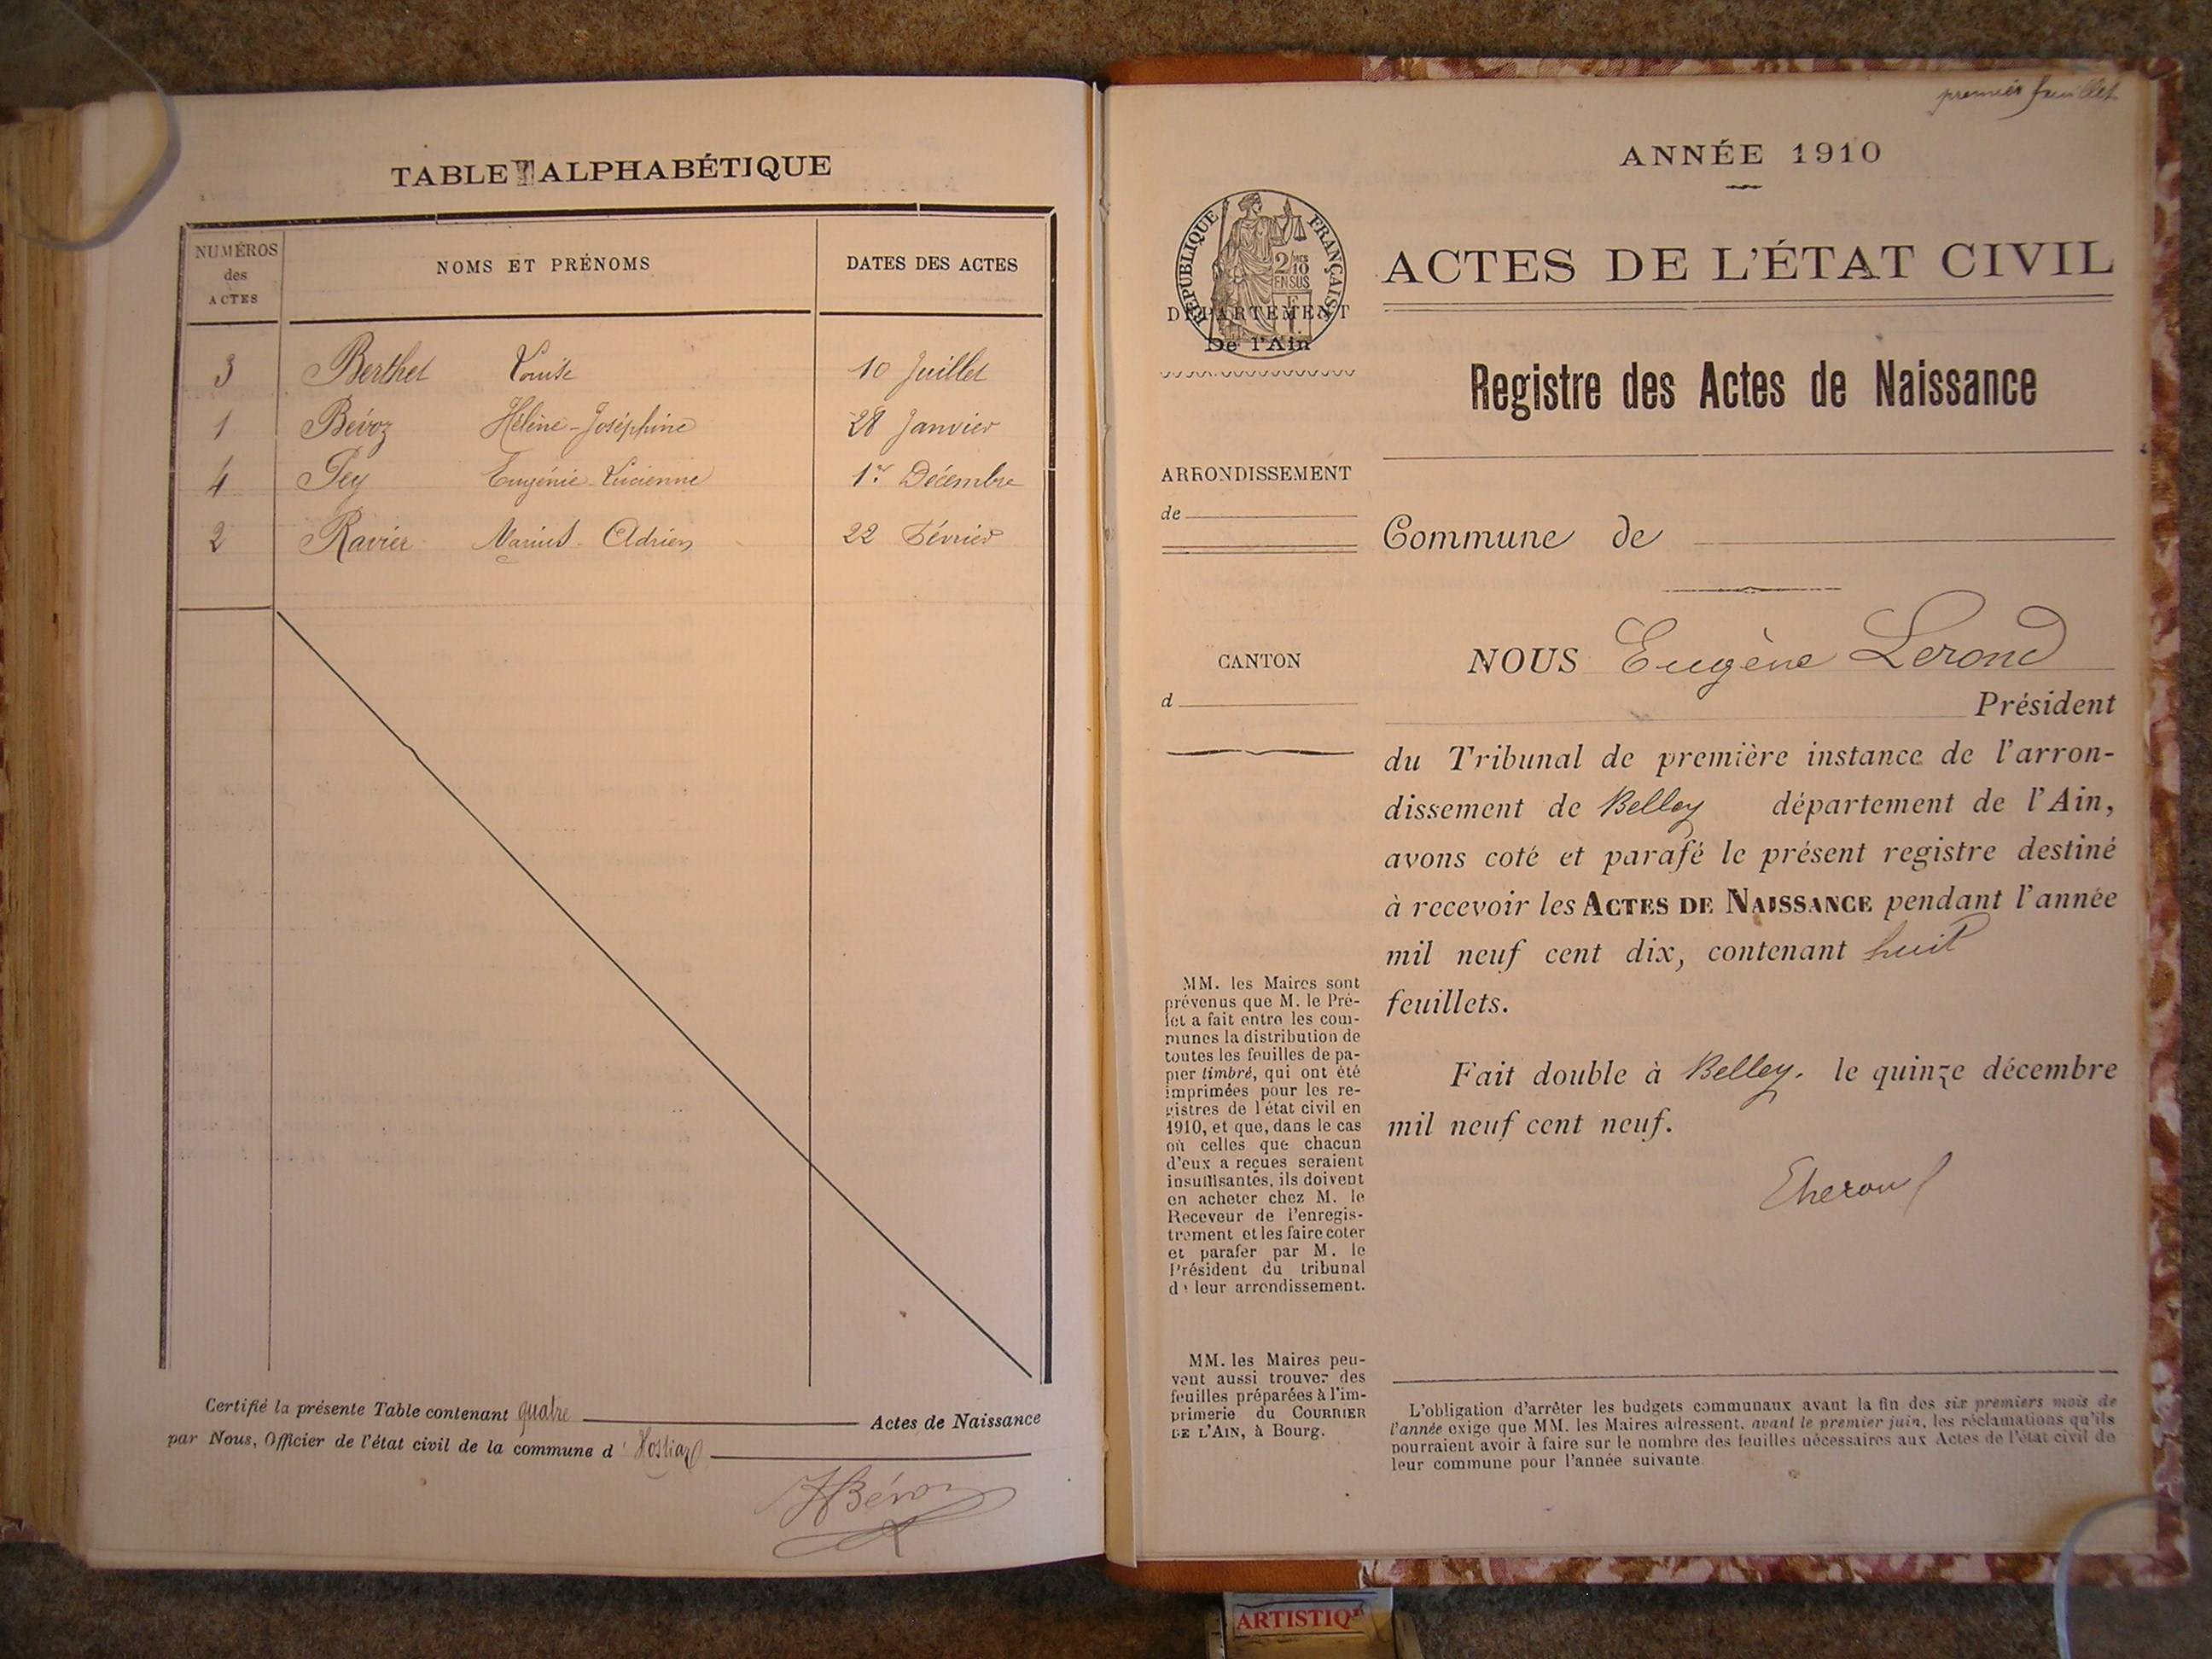 TABLE ALPHABÉTIQUE
NUMÉROS
des
ACTES
NOMS ET PRÉNOMS
DATES DES ACTES
3 Berthet Louise 10 Juillet
1 Bévoz Hélène-Joséphine 28 Janvier
4 Pey Eugénie-Lucienne 1er Décembre
2 Ravier Marius-Adrien 22 Février
Certifié la présente Table contenant quatre Actes de Naissance
par Nous, Officier de l'état civil de la commune d' Hostiaz
Bévoz
premier feuillet
ANNÉE 1910
RÉPUBLIQUE FRANÇAISE
2/10
EN SUS
DÉPARTEMENT
De l'Ain
ACTES DE L'ÉTAT CIVIL
Registre des Actes de Naissance
ARRONDISSEMENT
de
Commune de
CANTON
d
NOUS Eugène Lerond
Président
du Tribunal de première instance de l'arron-
dissement de Belley département de l'Ain,
avons coté et parafé le présent registre destiné
à recevoir les ACTES DE NAISSANCE pendant l'année
mil neuf cent dix, contenant huit
feuillets.
Fait double à Belley, le quinze décembre
mil neuf cent neuf.
MM. les Maires sont
prévenus que M. le Pré-
fet a fait entre les com-
munes la distribution de
toutes les feuilles de pa-
pier timbré, qui ont été
imprimées pour les re-
gistres de l'état civil en
1910, et que, dans le cas
où celles que chacun
d'eux a reçues seraient
insuffisantes, ils doivent
en acheter chez M. le
Receveur de l'enregis-
trement et les faire coter
et parafer par M. le
Président du tribunal
de leur arrondissement.
MM. les Maires peu-
vent aussi trouver des
feuilles préparées à l'im-
primerie du COURRIER
DE L'AIN, à Bourg.
L'obligation d'arrêter les budgets communaux avant la fin des six premiers mois de
l'année exige que MM. les Maires adressent, avant le premier juin, les réclamations qu'ils
pourraient avoir à faire sur le nombre des feuilles nécessaires aux Actes de l'état civil de
leur commune pour l'année suivante.
ARTISTIQ